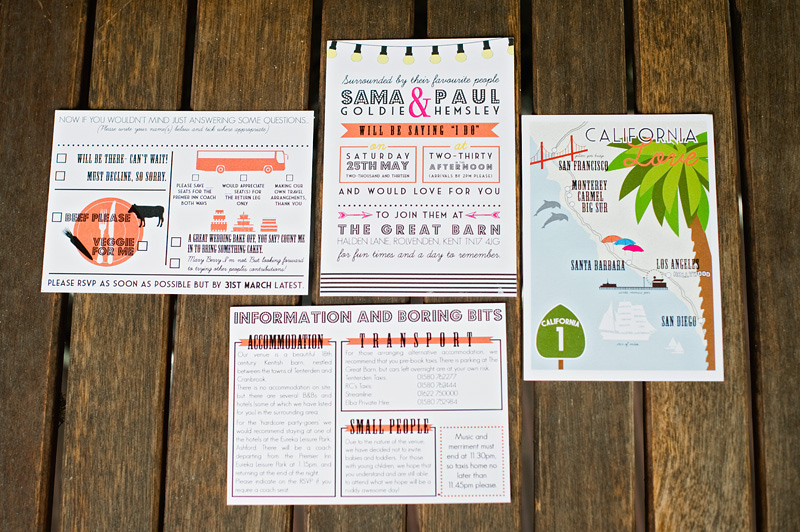 NOW IF YOU WOULDN'T MIND JUST ANSWERING SOME QUESTIONS.
(Please write your name(s) below and tick where appropriate)
WILL BE THERE- CAN'T WAIT!
MUST DECLINE, SO SORRY.
PLEASE SAVE
SEATS FOR THE
PREMIER INN COACH
BOTH WAYS
WOULD APPRECIATE
SEAT(S) FOR THE
RETURN LEG
ONLY
MAKING OUR
OWN TRAVEL
ARRANGEMENTS,
THANK YOU
BEEF PLEASE
VEGGIE
FOR ME
A GREAT WEDDING BAKE OFF, YOU SAY? COUNT ME
IN TO BRING SOMETHING CAKEY.
Mary Berry I'm not. But looking forward
to trying other people's contributions!
PLEASE RSVP AS SOON AS POSSIBLE BUT BY 31ST MARCH LATEST.
Surrounded by their favourite people
SAMA & PAUL
GOLDIE HEMSLEY
WILL BE SAYING "I DO"
on at
SATURDAY
25TH MAY
TWO THOUSAND AND THIRTEEN
TWO-THIRTY
AFTERNOON
(ARRIVALS BY 2PM PLEASE)
AND WOULD LOVE FOR YOU
TO JOIN THEM AT
THE GREAT BARN
HALDEN LANE, ROLVENDEN, KENT TN17 4JG
for fun times and a day to remember.
CALIFORNIA
Love
SAN FRANCISCO
MONTEREY
CARMEL
BIG SUR
SANTA BARBARA
LOS ANGELES
HOLLYWOOD
SAN DIEGO
CALIFORNIA
1
INFORMATION AND BORING BITS
ACCOMMODATION
Our venue is a beautiful 18th
century Kentish barn nestled
between the towns of Tenterden and
Cranbrook.
There is no accommodation on site,
but there are several B&Bs and
hotels (some of which we have listed
for you) in the surrounding area.
For the 'hardcore party-goers' we
would recommend staying at one of
the hotels at the Eureka Leisure Park,
Ashford. There will be a coach
departing from the Premier Inn
Eureka Leisure Park at 1.15pm, and
returning at the end of the night.
Please indicate on the RSVP if you
require a coach seat.
TRANSPORT
For those arranging alternative accommodation, we
recommend that you pre-book taxis. There is parking at The
Great Barn, but cars left overnight are at your own risk.
Tenterden Taxis: 01580 762277
RC's Taxis: 01580
Streamline: 01622 750000
Elba Private Hire: 01580 752984
SMALL PEOPLE
Due to the nature of the venue
we have decided not to invite
babies and toddlers. For those
with young children, we hope that
you understand and are still able
to attend what we hope will be a
toddy awesome day!
Music and
merriment must
end at 11.30pm,
so taxis home no
later than
11.45pm please.